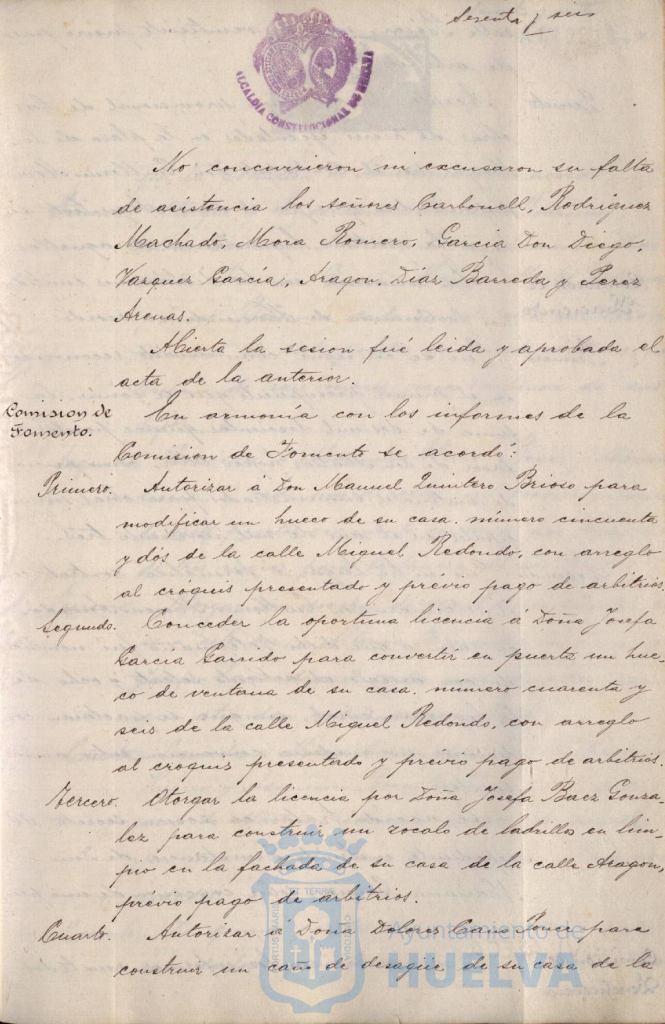 Sesenta y seis
ALCALDIA CONSTITUCIONAL DE HUELVA
No concurrieron ni excusaron su falta
de asistencia los señores Carbonell, Rodriguez
Machado, Mora Romero, García Don Diego,
Vazquez García, Aragon, Díaz Barreda y Perez
Arenas.
Abierta la sesion fué leida y aprobada el
acta de la anterior.
Comision de
Fomento.
En armonía con los informes de la
Comision de Fomento se acordó:
Primero. Autorizar á Don Manuel Quintero Brioso para
modificar un hueco de su casa. número cincuenta
y dós de la calle Miguel Redondo, con arreglo
al cróquis presentado y prévio pago de arbitrios.
Segundo. Conceder la oportuna licencia á Doña Josefa
García Garrido para convertir en puerta un hue-
co de ventana de su casa. número cuarenta y
seis de la calle Miguel Redondo, con arreglo
al croquis presentado y prévio pago de arbitrios.
Tercero. Otorgar la licencia por Doña Josefa Baez Gonza-
lez para construir un zócalo de ladrillos en lim-
pio en la fachada de su casa de la calle Aragon,
prévio pago de arbitrios.
Cuarto. Autorizar á Doña Dolores Cano Ponce para
construir un caño de desagüe de su casa de la
Ayuntamiento de
HUELVA